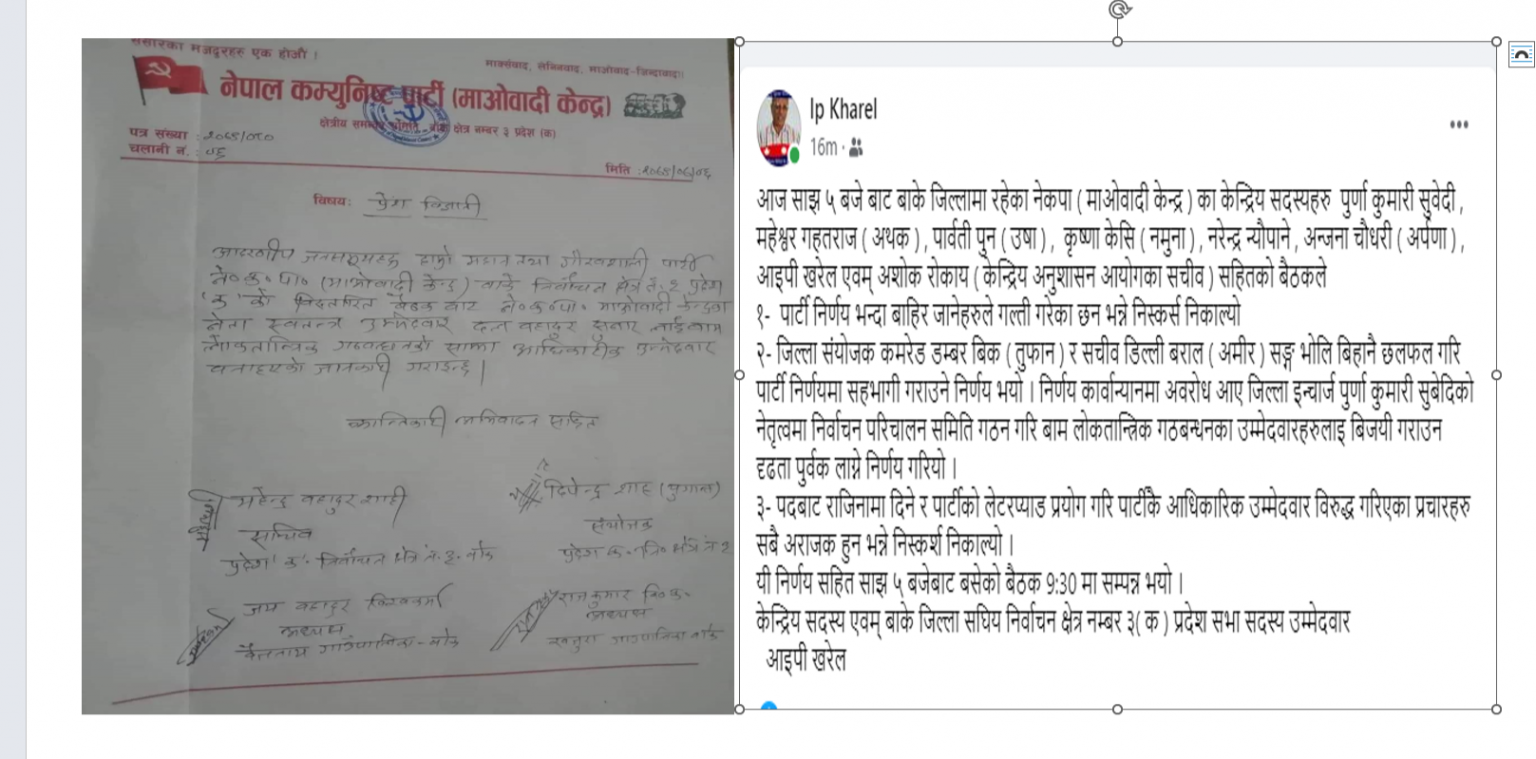 संसारका मजदुरहरु एक होऔं !
मार्क्सवाद, लेनिनवाद, माओवाद-जिन्दावाद।
नेपाल कम्युनिष्ट पार्टी (माओवादी केन्द्र)
क्षेत्रीय बाँके क्षेत्र नम्बर ३ प्रदेश (क)
पत्र संख्या :
चलानी न. : ०६
मिति :
विषय: प्रेस विज्ञप्ती
आदरणीय हाम्रो महान तथा गौरवशाली पार्टी
ने०क०पा० (माओवादी केन्द्र) बाँके निर्वाचन क्षेत्र नं. प्रदेश
'क' को बैठक बाट ने०क०पा० माओवादी केन्द्रका
नेता स्वतन्त्र उम्मेदवार बहादुर सुनार लाई बाम
लोकतान्त्रिक गठबन्धनको साझा आधिकारीक उम्मेदवार
जानकारी गराइन्छ।
क्रान्तिकारी अभिवादन सहित
महेन्द्र बहादुर शाही
सचिव
प्रदेश 'क' निर्वाचन क्षेत्र नं. बाँके
दिपेन्द्र शाह
संयोजक
प्रदेश क
जय बहादुर विश्वकर्मा
अध्यक्ष
बैजनाथ गाउँपालिका - बाँके
राजकुमार वि०क०
अध्यक्ष
खजुरा गाउँपालिका बाँके
Ip Kharel
16m
आज साझ ५ बजे बाट बाके जिल्लामा रहेका नेकपा ( माओवादी केन्द्र ) का केन्द्रिय सदस्यहरु पुर्णा कुमारी सुवेदी ,
महेश्वर गहतराज ( अथक ) , पार्वती पुन ( उषा ) , कृष्णा केसि ( नमुना ) , नरेन्द्र न्यौपाने , अन्जना चौधरी ( अर्पणा ) ,
आइपी खरेल एवम् अशोक रोकाय ( केन्द्रिय अनुशासन आयोगका सचीव ) सहितको बैठकले
१- पार्टी निर्णय भन्दा बाहिर जानेहरुले गल्ती गरेका छन भन्ने निस्कर्स निकाल्यो
२- जिल्ला संयोजक कमरेड डम्बर बिक ( तुफान ) र सचीव डिल्ली बराल ( अमीर ) सङ्ग भोलि बिहानै छलफल गरि
पार्टी निर्णयमा सहभागी गराउने निर्णय भयो । निर्णय कार्वान्यानमा अवरोध आए जिल्ला इन्चार्ज पुर्णा कुमारी सुबेदिको
नेतृत्वमा निर्वाचन परिचालन समिति गठन गरि बाम लोकतान्त्रिक गठबन्धनका उम्मेदवारहरुलाइ बिजयी गराउन
दृढता पुर्वक लाग्ने निर्णय गरियो ।
३- पदबाट राजिनामा दिने र पार्टीको लेटरप्याड प्रयोग गरि पार्टीकै आधिकारिक उम्मेदवार विरुद्ध गरिएका प्रचारहरु
सबै अराजक हुन भन्ने निस्कर्श निकाल्यो ।
यी निर्णय सहित साझ ५ बजेबाट बसेको बैठक 9:30 मा सम्पन्न भयो ।
केन्द्रिय सदस्य एवम् बाके जिल्ला संघिय निर्वाचन क्षेत्र नम्बर ३( क ) प्रदेश सभा सदस्य उम्मेदवार
आइपी खरेल